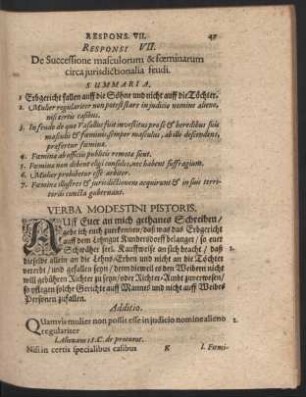 RESPONS. VII.
RESPONSI VII.
De Successione masculorum & fœminarum
circa jurisdictionalia feudi.
SUMMARIA.
1 Erbgericht fallen auff die Söhne und nicht auff die Töchter.
2. Mulier regulariter non potest stare in judicio nomine alieno,
nisi certis casibus.
3. In feudo de quo Vasallus fuit investitus pro se & heredibus suis
masculis & fœminis semper masculus, ab illo descendens,
prefertur fœmina.
4. Fœmina ab officiis publicis remota sunt.
5. Fœmina non debent eligi consules, nec habent suffragium.
6. Mulier prohibetur esse arbiter.
7. Fœmina illustres & jurisdictionem acquirunt & in suis terri-
toriis cuncta gubernant.
VERBA MODESTINI PISTORIS.
AUff Euer an mich gethanes Schreiben/
gebe ich euch zuerkennen/ daß was das Erbgericht
auff dem Lehngut Kunderßdorff belanget/ so euer
Schwäher sel. Kauffweise an sich bracht/ daß
dieselb allein an die Lehns-Erben und nicht an die Töchter
vererbt/ und gefallen seyn/ denn dieweil es den Weibern nicht
will gebühren Richter zu seyn/ oder Richter-Ambt zuverwesen/
so pflegen solche Gericht auff Mannes und nicht auff Weibes
Personen zufallen.
Additio.
QUamvis mulier non possit esse in judicio nomine alieno
regulariter
l. alienam 18. C. de procurat.
Nisi in certis specialibus casibus
K
l. Fœmi-